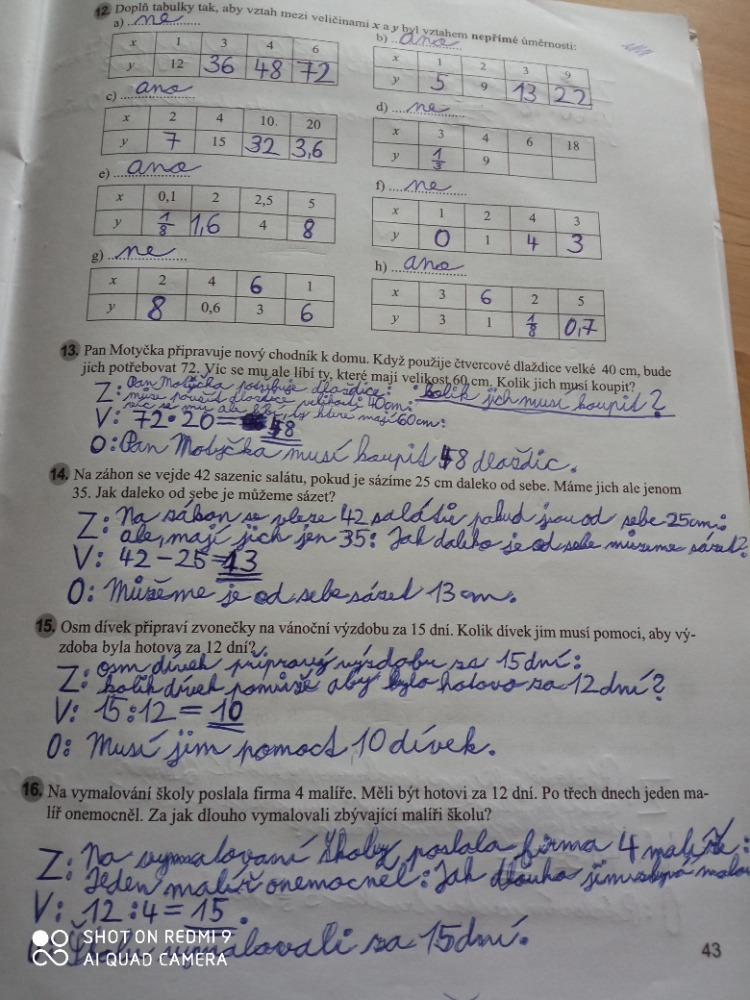 12. Doplň tabulky tak, aby vztah mezi veličinami x a y byl vztahem nepřímé úměrnosti:
a) ne
x 1 3 4 6
y 12 36 48 72
b) ano
x 1 2 3 9
y 5 9 13 22
c) ano
x 2 4 10. 20
y 7 15 32 3,6
d) ne
x 3 4 6 18
y 1/3 9
e) ano
x 0,1 2 2,5 5
y 1/8 1,6 4 8
f) ne
x 1 2 4 3
y 0 1 4 3
g) ne
x 2 4 6 1
y 8 0,6 3 6
h) ano
x 3 6 2 5
y 3 1 1/8 0,7
13. Pan Motyčka připravuje nový chodník k domu. Když použije čtvercové dlaždice velké 40 cm, bude
jich potřebovat 72. Víc se mu ale líbí ty, které mají velikost 60 cm. Kolik jich musí koupit?
Z: Pan Motyčka potřebuje dlaždice: kolik jich musí koupit?
může použít dlaždice velikosti 40cm:
víc se mu ale líbí, ty které mají 60cm:
V: 72·20= 48
O: Pan Motyčka musí koupit 48 dlaždic.
14. Na záhon se vejde 42 sazenic salátu, pokud je sázíme 25 cm daleko od sebe. Máme jich ale jenom
35. Jak daleko od sebe je můžeme sázet?
Z: Na záhon se vleze 42 salátů pokud jsou od sebe 25cm:
ale, mají jich jen 35: Jak daleko je od sebe můzeme sázet?
V: 42-25=13
O: Můžeme je od sebe sázet 13cm.
15. Osm dívek připraví zvonečky na vánoční výzdobu za 15 dní. Kolik dívek jim musí pomoci, aby vý-
zdoba byla hotova za 12 dní?
Z: osm dívek připravý výzdobu za 15dní:
kolik dívek pomůže aby bylo hotovo za 12dní?
V: 15:12=10
O: Musí jim pomoct 10 dívek.
16. Na vymalování školy poslala firma 4 malíře. Měli být hotovi za 12 dní. Po třech dnech jeden ma-
líř onemocněl. Za jak dlouho vymalovali zbývající malíři školu?
Z: Na vymalovaní školy poslala firma 4 malíře:
Jeden malíř onemocněl: Jak dlouho jim
V: 12:4=15.
Školu vymalovali za 15dní.
SHOT ON REDMI 9
AI QUAD CAMERA
43